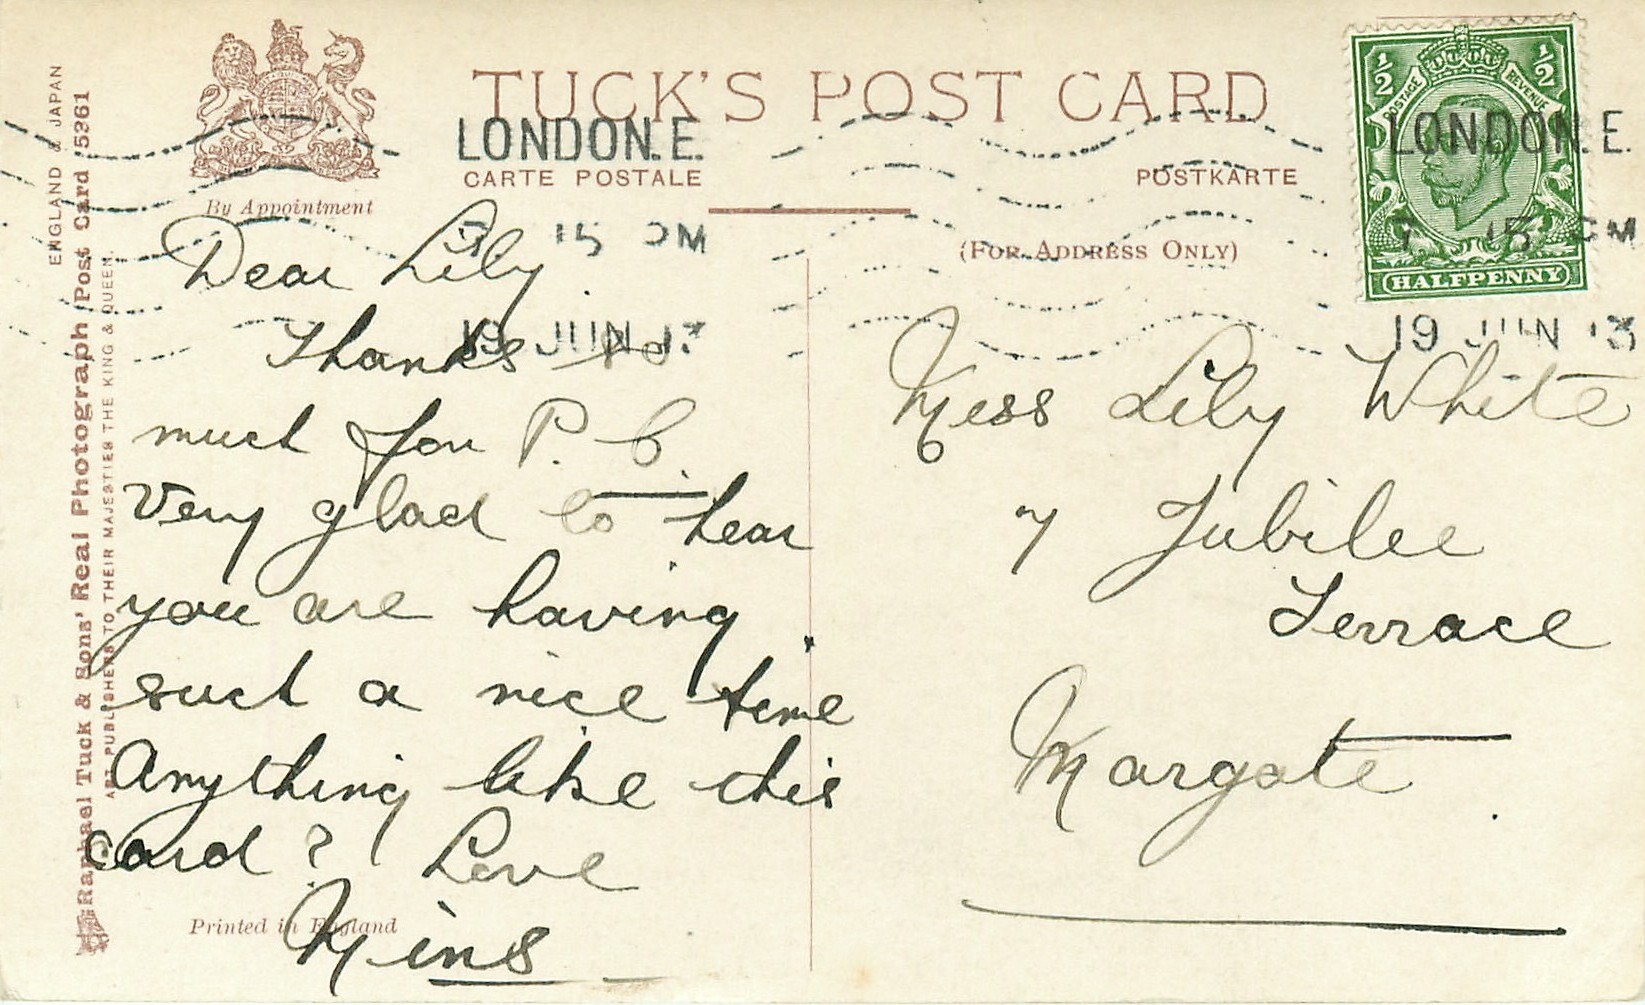 TUCK'S POST CARD
CARTE POSTALE
POSTKARTE
By Appointment
(FOR ADDRESS ONLY)
LONDON.E.
15 PM
19 JUN 13
½ ½
POSTAGE REVENUE
HALFPENNY
LONDON.E.
7 15 PM
19 JUN 13
ENGLAND & JAPAN
Raphael Tuck & Sons' Real Photograph Post Card 5361
ART PUBLISHERS TO THEIR MAJESTIES THE KING & QUEEN.
Dear Lily.
Thanks so
much for P. C.
Very glad to hear
you are having
such a nice time
Anything like this
card? Love
Mins
Printed in England
Miss Lily White
7 Jubilee
Terrace
Margate